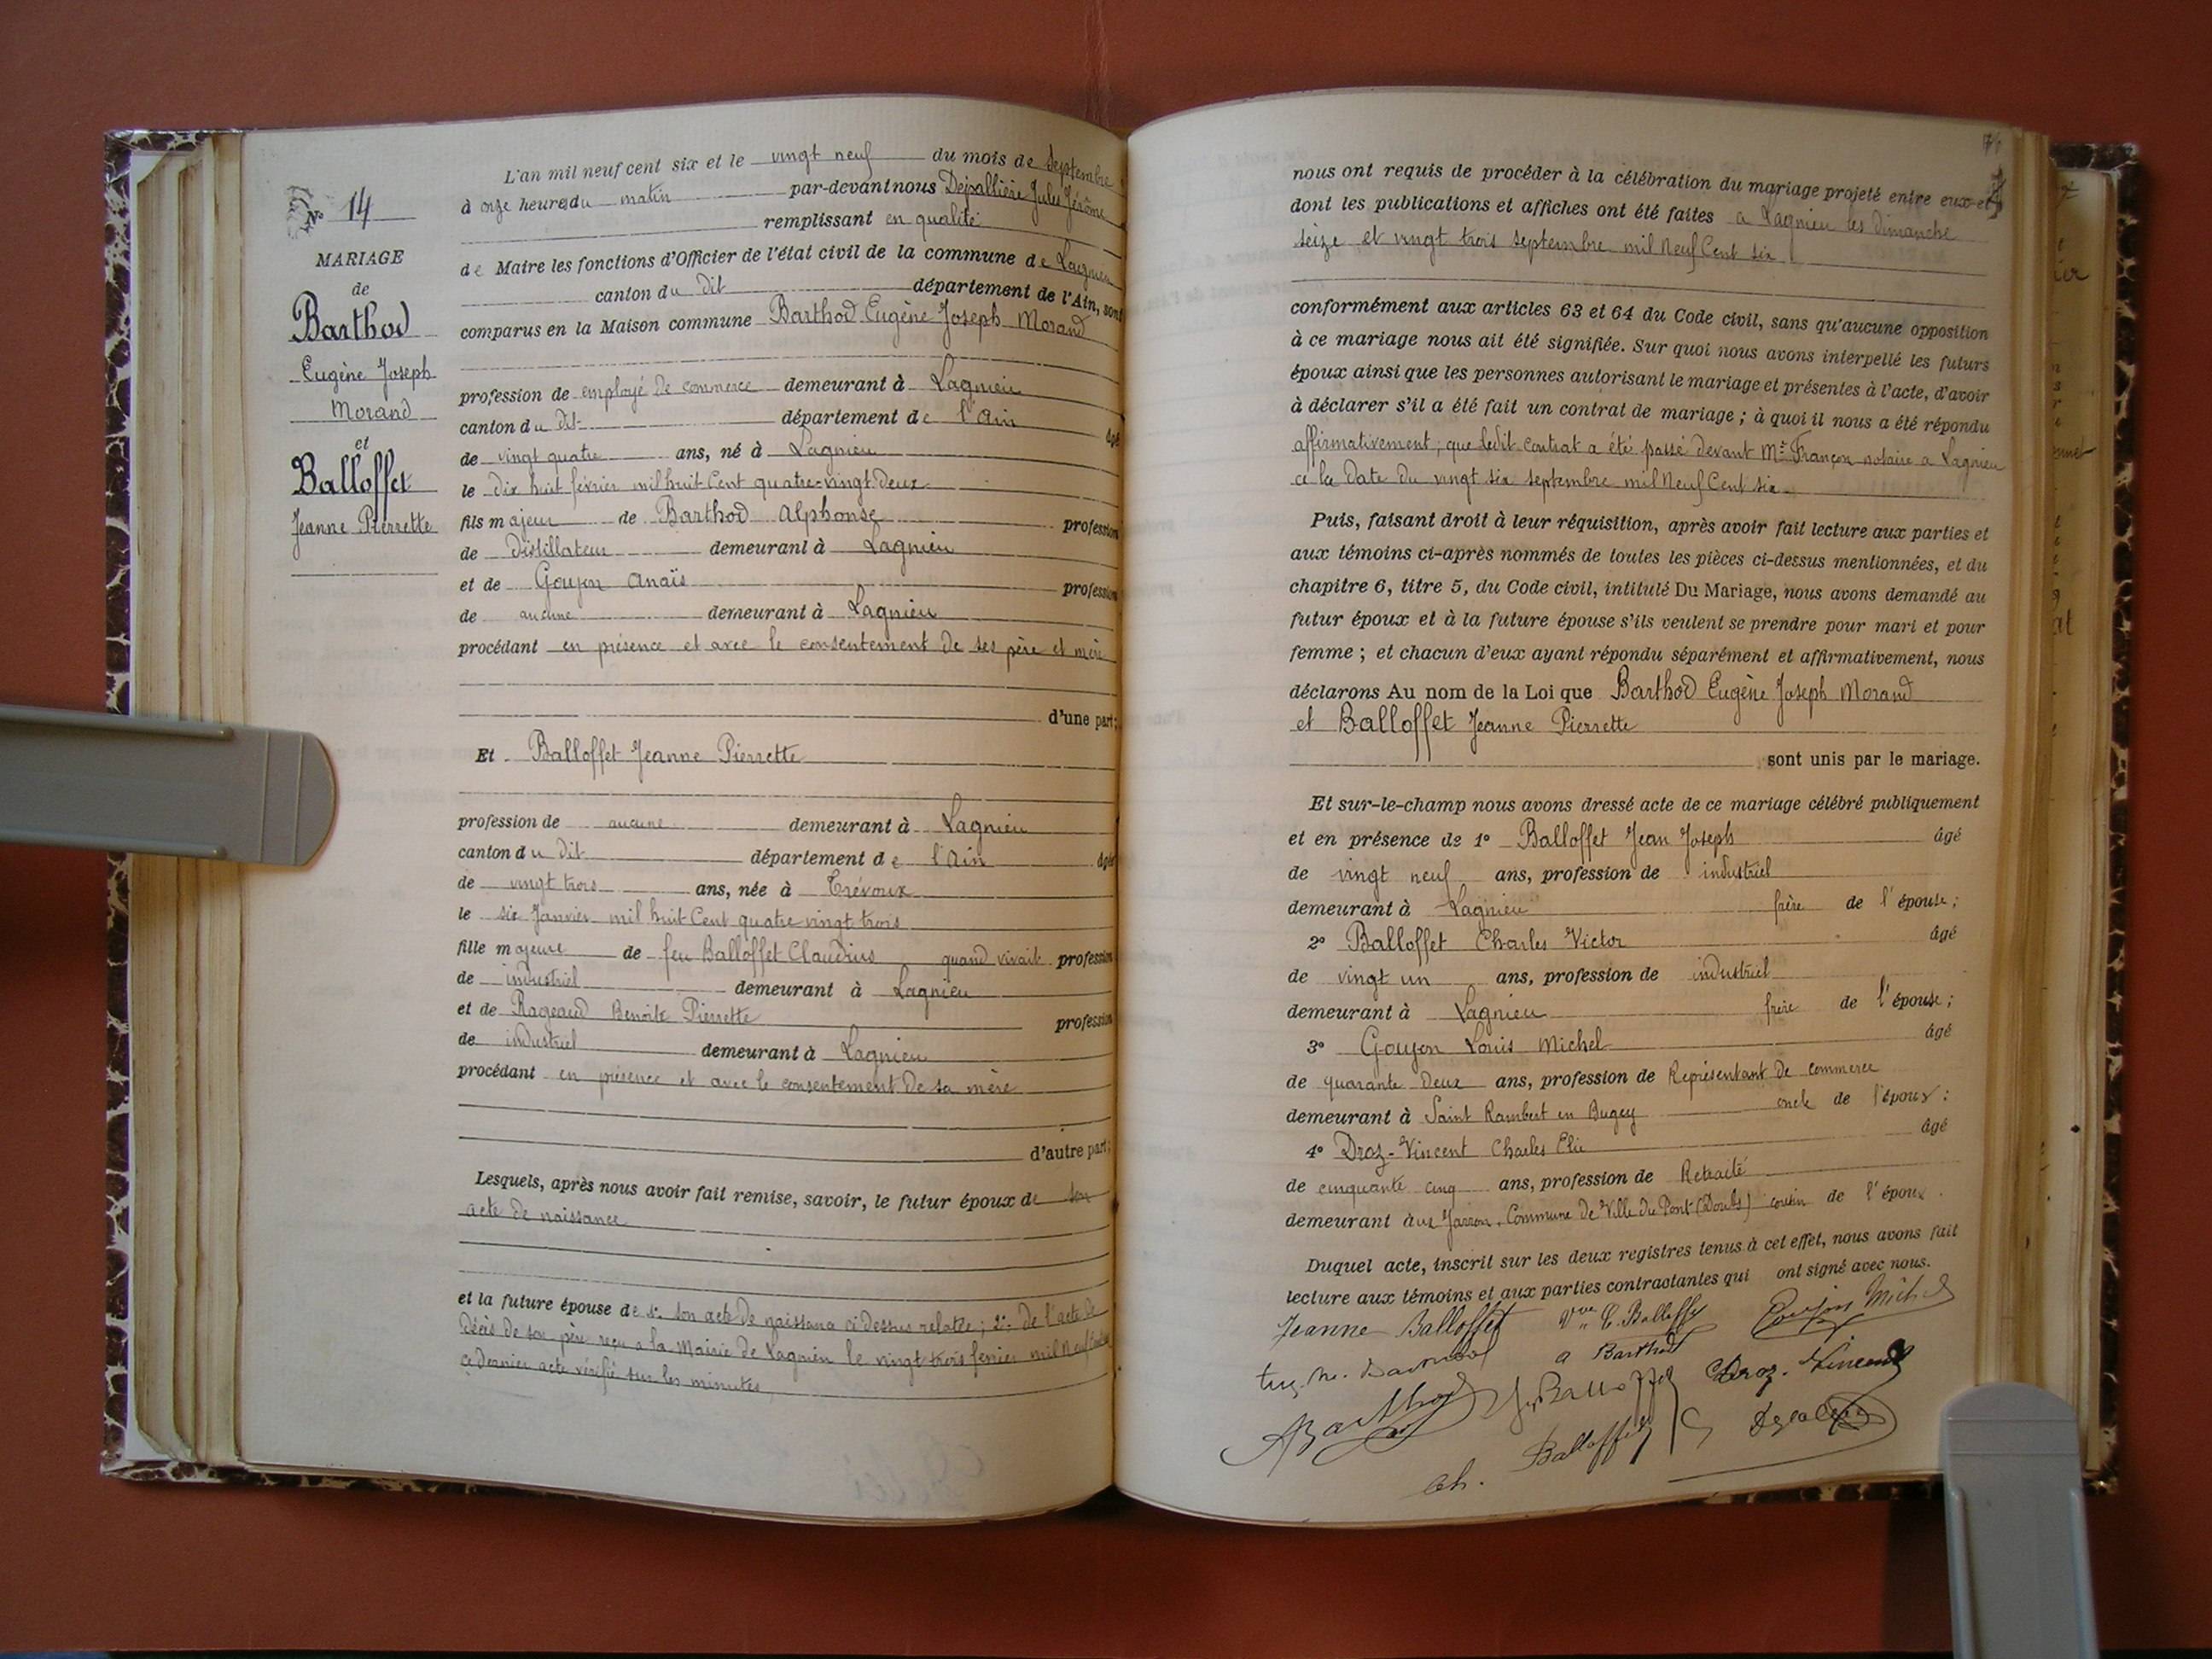 N° 14
MARIAGE
de
Barthod
Eugène Joseph
Morand
et
Balloffet
Jeanne Pierrette
L'an mil neuf cent six et le vingt neuf du mois de Septembre
à onze heures du matin par-devant nous Dejallière Jules Jérôme
remplissant en qualité
de Maire les fonctions d'Officier de l'état civil de la commune de Lagnieu
canton du dit département de l'Ain, sont
comparus en la Maison commune Barthod Eugène Joseph Morand
profession de employé de commerce demeurant à Lagnieu
canton du dit département de l'Ain âgé
de vingt quatre ans, né à Lagnieu
le dix huit février mil huit Cent quatre-vingt deux
fils majeur de Barthod Alphonse profession
de distillateur demeurant à Lagnieu
et de Goujon Anaïs profession
de aucune demeurant à Lagnieu
procédant en présence et avec le consentement de ses père et mère
d'une part;
Et Balloffet Jeanne Pierrette
profession de aucune demeurant à Lagnieu
canton du dit département de l'Ain âgée
de vingt trois ans, née à Trévoux
le six Janvier mil huit Cent quatre vingt trois
fille majeure de feu Balloffet Claudius quand vivait profession
de industriel demeurant à Lagnieu
et de Rageaud Benoite Pierrette profession
de industriel demeurant à Lagnieu
procédant en présence et avec le consentement de sa mère
d'autre part;
Lesquels, après nous avoir fait remise, savoir, le futur époux de son
acte de naissance
et la future épouse de 1° son acte de naissance ci dessus relatée; 2° de l'acte de
décès de son père reçu a la Mairie de Lagnieu le vingt trois fevrier mil Neuf Cent
ce dernier acte vérifié sur les minutes
nous ont requis de procéder à la célébration du mariage projeté entre eux et
dont les publications et affiches ont été faites a Lagnieu les dimanche
seize et vingt trois septembre mil Neuf Cent six
conformément aux articles 63 et 64 du Code civil, sans qu'aucune opposition
à ce mariage nous ait été signifiée. Sur quoi nous avons interpellé les futurs
époux ainsi que les personnes autorisant le mariage et présentes à l'acte, d'avoir
à déclarer s'il a été fait un contrat de mariage; à quoi il nous a été répondu
affirmativement; que ledit contrat a été passé devant Me Françon notaire a Lagnieu
a la date du vingt six septembre mil Neuf Cent six.
Puis, faisant droit à leur réquisition, après avoir fait lecture aux parties et
aux témoins ci-après nommés de toutes les pièces ci-dessus mentionnées, et du
chapitre 6, titre 5, du Code civil, intitulé Du Mariage, nous avons demandé au
futur époux et à la future épouse s'ils veulent se prendre pour mari et pour
femme; et chacun d'eux ayant répondu séparément et affirmativement, nous
déclarons Au nom de la Loi que Barthod Eugène Joseph Morand
et Balloffet Jeanne Pierrette
sont unis par le mariage.
Et sur-le-champ nous avons dressé acte de ce mariage célébré publiquement
et en présence de 1° Balloffet Jean Joseph âgé
de vingt neuf ans, profession de industriel
demeurant à Lagnieu frère de l'épouse;
2° Balloffet Charles Victor âgé
de vingt un ans, profession de industriel
demeurant à Lagnieu frère de l'épouse;
3° Goujon Louis Michel âgé
de quarante deux ans, profession de Représentant de commerce
demeurant à Saint Rambert en Bugey oncle de l'époux:
4° Droz-Vincent Charles Elie âgé
de cinquante cinq ans, profession de Retraité
demeurant aux Jarron. Commune de Ville du Pont (Doubs) cousin de l'époux.
Duquel acte, inscrit sur les deux registres tenus à cet effet, nous avons fait
lecture aux témoins et aux parties contractantes qui ont signé avec nous.
Jeanne Balloffet Vve C. Balloffet Goujon Michel
Eug. M. Barthod a Barthod Droz-Vincent
A Barthod J. Balloffet
Ch. Balloffet